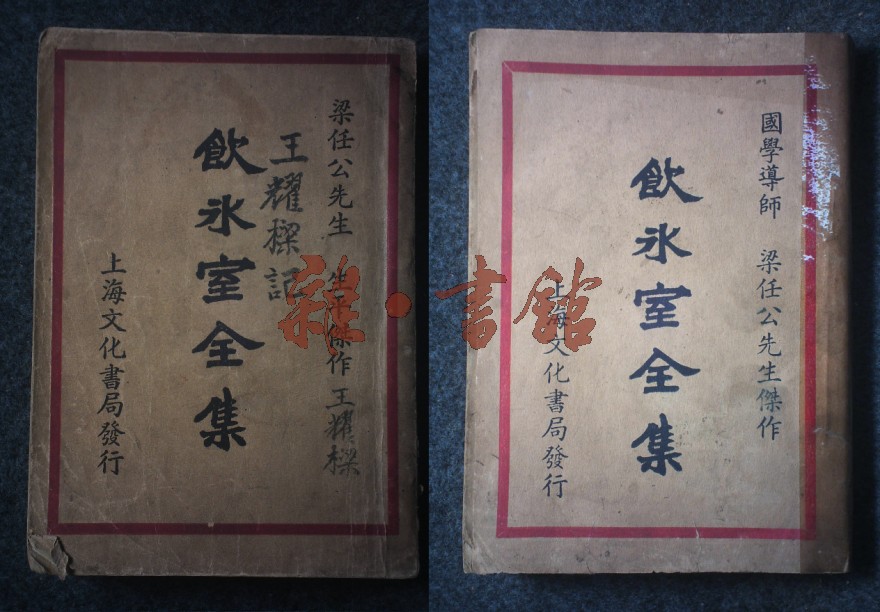 梁任公先生 生平傑作
王耀樑
王耀樑記
飲氷室全集
上海文化書局發行
國學導師 梁任公先生傑作
飲氷室全集
上海文化書局發行
雜·書館